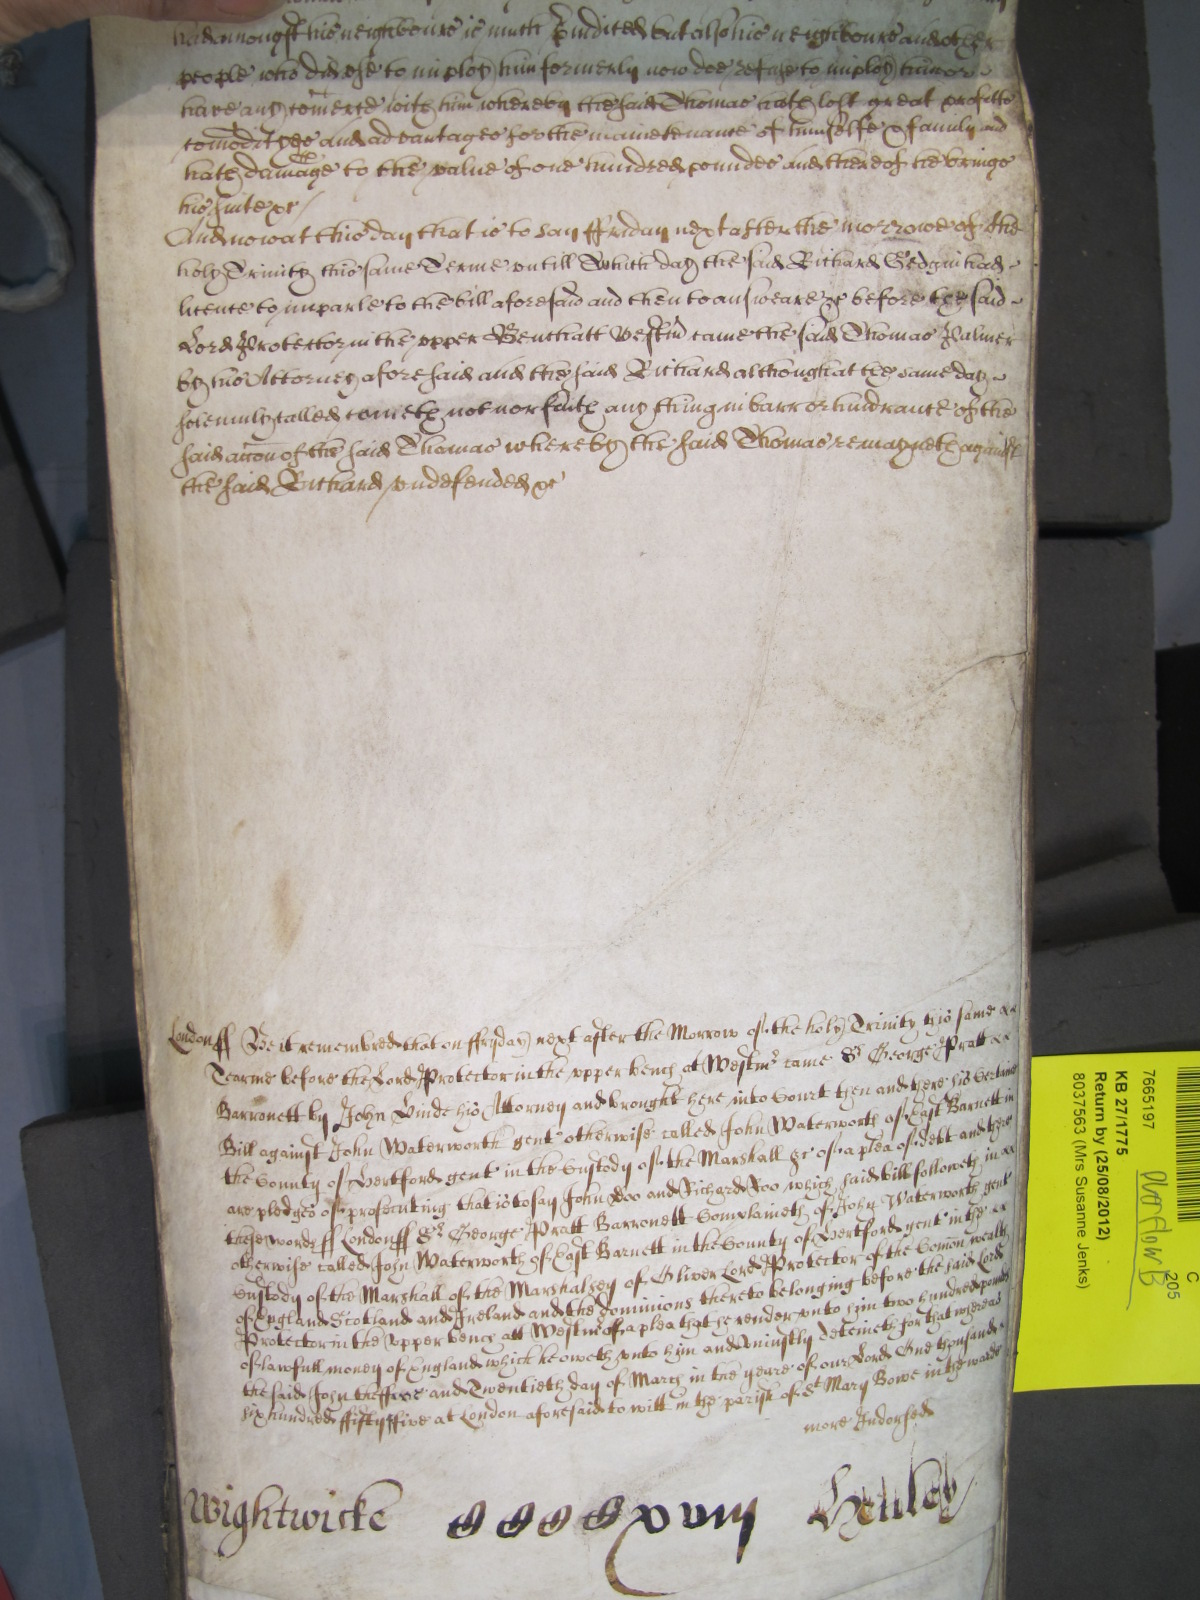 had amongst his neighbours is much p'iudiced but alsoe his neighbours and other
people who did use to imploy him formerly now doe refuse to imploy him or
have any comerce with him whereby the said Thomas hath lost great profitts
comodityes and advantages for the maintenance of himselfe & family and
hath damage to the value of one hundred poundes and thereof he bringes
his suite &c
And now at this day that is to say ffriday next after the morrowe of the
holy Trinity this same Terme untill which day the said Richard Gedgin had
licence to imparle to the bill aforesaid and then to answeare &c before the said
Lord Protector in the upper Bench att Westm' came the said Thomas Palmer
by his Attorney aforesaid and the said Richard although at the same day
solemnly called cometh not nor saith any thing in barr or hindrance of the
said accon of the said Thomas whereby the said Thomas remayneth against
the said Richard undefended &c
London ff Be it remembred that on ffryday next after the Morrow of the holy Trinity this same
Tearme before the Lord Protector in the upper bench at Westmr came Sr George Pratt
Barronett by John Linde his Attorney and brought here into Court then and there his Certaine
Bill against John Waterworth gent otherwise called John Waterworth of East Barnett in
the County of Hertford gent in the Custody of the Marshall &c of a plea of debt and there
are pledges of prosecuting that is to say John Doo and Richard Roo which said bill followeth in
these words ff London ff Sr George Pratt Barronett Complaineth of John Waterworth gent
otherwise called John Waterworth of East Barnett in the County of Hertford gent in the
Custody of the Marshall of the Marshalsey of Oliver Lord Protector of the Comon wealth
of England Scotland and Ireland and the Dominions thereto belonging before the said Lord
Protector in the upper bench att Westmr of a plea that he render unto him two hundred pounds
of lawfull money of England which he oweth unto him and Uniustly deteineth for that whereas
the said John the ffive and Twentieth day of March in the yeare of our Lord One thousand
six hundred ffifty ffive at London aforesaid to witt in the parish of St Mary Bowe in the warde
more Indorsed
Wightwicke CCCCxviij Henley
7665197
KB 27/1775
Return by (25/08/2012)
8037563 (Mrs Susanne Jenks)
C
205
Overflow B